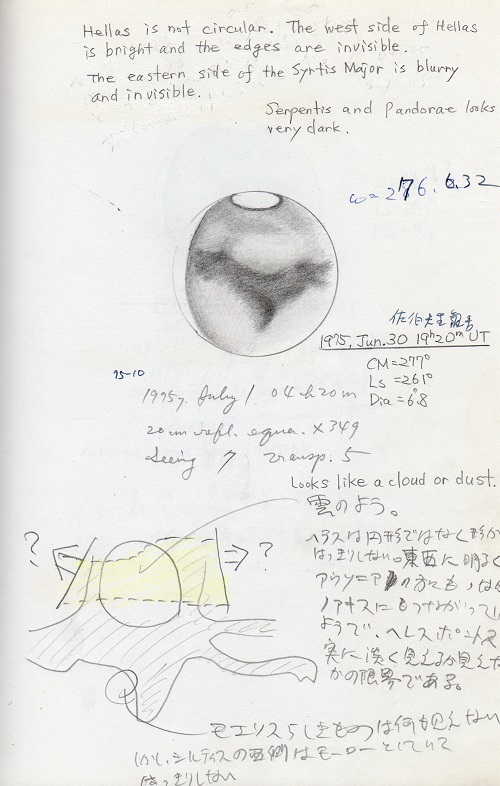 Hellas is not circular. The west side of Hellas
is bright and the edges are invisible.
The eastern side of the Syrtis Major is blurry
and invisible.
Serpentis and Pandorae looks
very dark.
ω=276. 6.32
1975, Jun.30 19h20m UT
CM=277°
Ls=261°
Dia=6".8
75-10
1975 July 1 04h20m
20cm refl. equa. ×349
Seeing 7 Transp. 5
Looks like a cloud or dust.
雲のよう。
ヘラスは円形ではなく形が
はっきりしない。東西に明るく
の方にも、
ノアキスにもつながって
ようで、ヘレスポントス
実に淡く見えるか見えな
かの限界である。
? ?
モエリスらしきものは何も見えない
しかし、シルティスの西側はモーローとしていて
はっきりしない